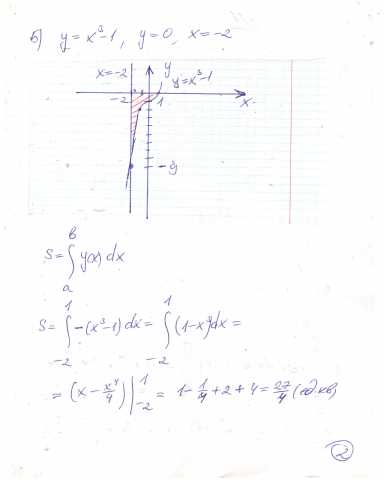 б) y = x³-1, y=0, x=-2
x=-2 y y=x³-1
-2 1 x
-9
b
S=∫ y(x) dx
a
1
S= ∫ -(x³-1) dx = ∫ (1-x³)dx =
-2 -2
= (x - x⁴/4) |¹₋₂ = 1 - 1/4 + 2 + 4 = 27/4 (ед.кв)
2